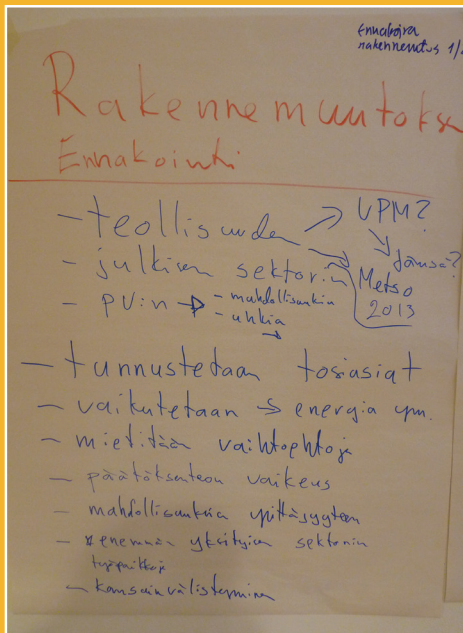 Ennakoiva
rakennemutos 1/
Rakennemuutoksen
Ennakointi
- teollisuuden → UPM?
→ Jämsä?
- julkisen sektorin
Metso
2013
- PV:n → - mahdollisuuksia
- uhkia
→
- tunnustetaan tosiasiat
- vaikutetaan → energia ym.
- mietitään vaihtoehtoja
- päätöksenteon vaikeus
- mahdollisuuksia yrittäjyyteen
- enemmän yksityisen sektorin
työpaikkoja
- kansainvälistyminen